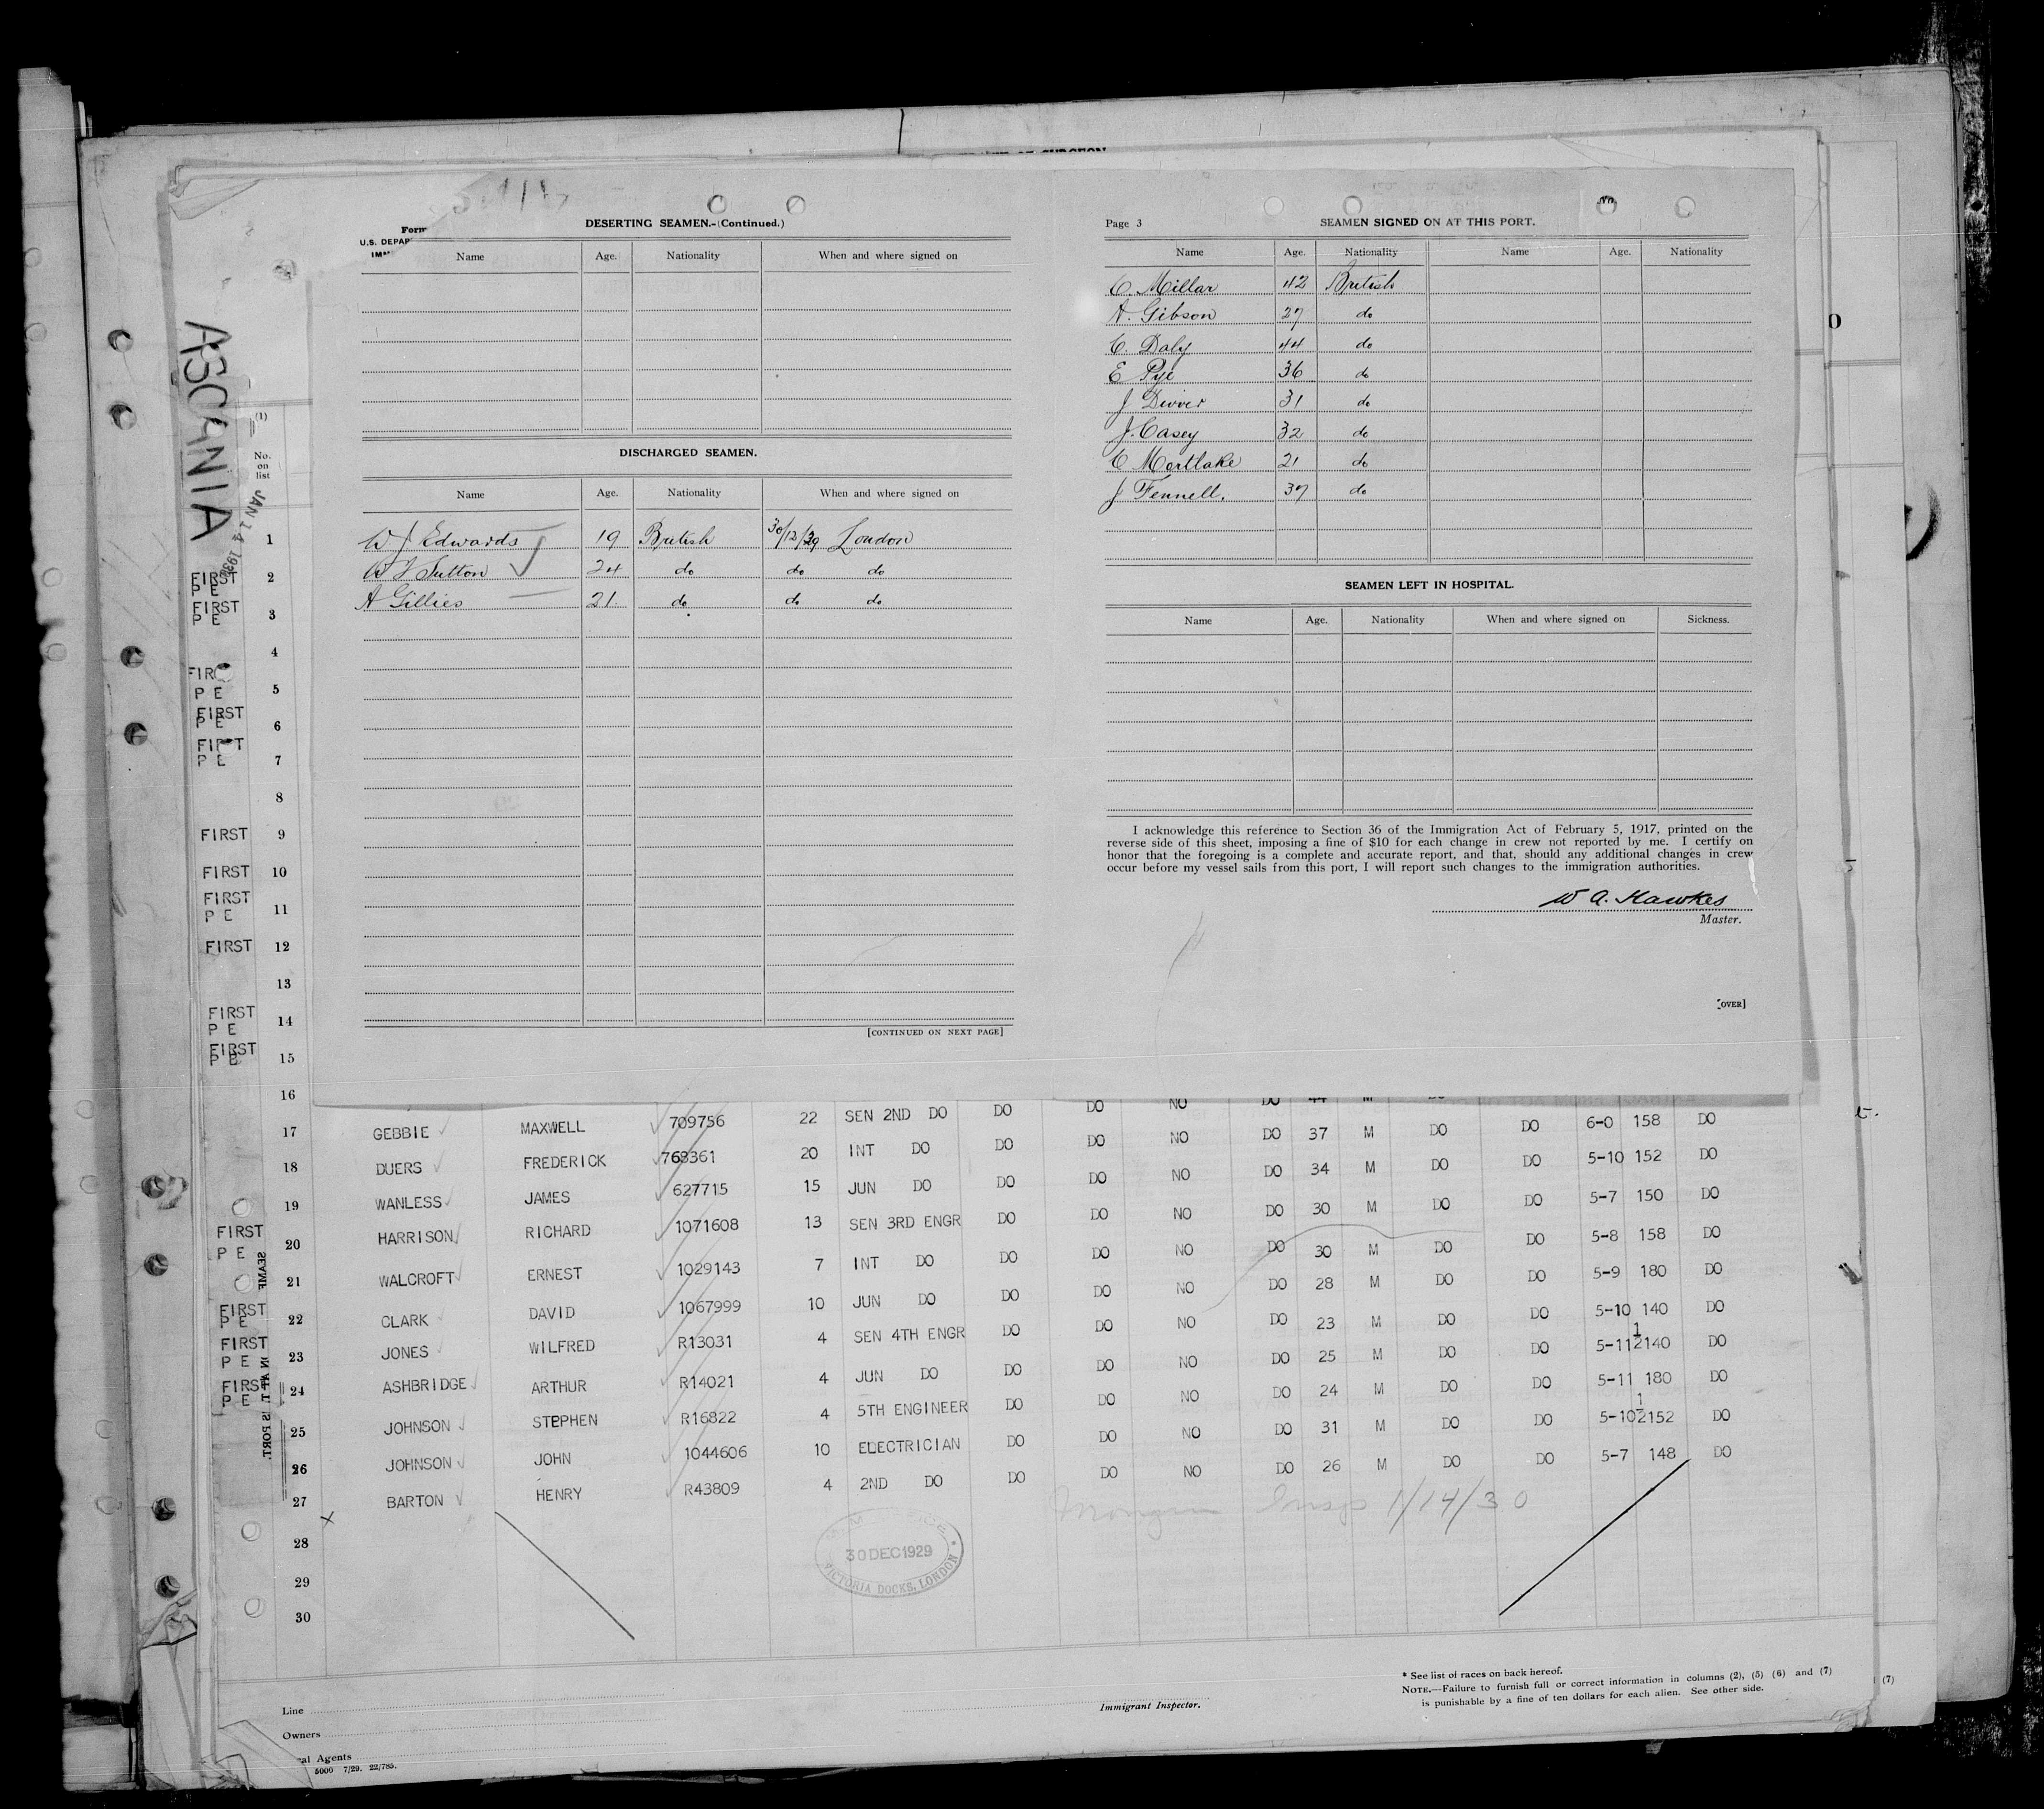 DESERTING SEAMEN.-(Continued.)
Form
U.S. DEPAR
IMM
Name Age. Nationality When and where signed on
DISCHARGED SEAMEN.
Name Age. Nationality When and where signed on
W J Edwards 19 British 30/12/29 London
W J Sutton 24 do do do
A Gillies 21 do do do
[CONTINUED ON NEXT PAGE]
Page 3 SEAMEN SIGNED ON AT THIS PORT.
Name Age. Nationality Name Age. Nationality
C. Millar 42 British
A. Gibson 27 do
C. Daly 44 do
E Pye 36 do
J Divver 31 do
J. Casey 32 do
C Mortlake 21 do
J Fennell. 37 do
SEAMEN LEFT IN HOSPITAL.
Name Age. Nationality When and where signed on Sickness.
I acknowledge this reference to Section 36 of the Immigration Act of February 5, 1917, printed on the
reverse side of this sheet, imposing a fine of $10 for each change in crew not reported by me. I certify on
honor that the foregoing is a complete and accurate report, and that, should any additional changes in crew
occur before my vessel sails from this port, I will report such changes to the immigration authorities.
W A. Hawkes
Master.
[OVER]
ASCANIA
JAN 14 1930
(1)
No.
on
list
1
FIRST 2
P E
FIRST 3
P E
4
FIRST
P E 5
FIRST
P E 6
FIRST
P E 7
8
FIRST 9
FIRST 10
FIRST
P E 11
FIRST 12
13
FIRST
P E 14
FIRST
P E 15
16
NO DO 44 M DO
17 GEBBIE MAXWELL 709756 22 SEN 2ND DO DO DO NO DO 37 M DO DO 6-0 158 DO
18 DUERS FREDERICK 763361 20 INT DO DO DO NO DO 34 M DO DO 5-10 152 DO
19 WANLESS JAMES 627715 15 JUN DO DO DO NO DO 30 M DO DO 5-7 150 DO
FIRST P E 20 HARRISON RICHARD 1071608 13 SEN 3RD ENGR DO DO NO DO 30 M DO DO 5-8 158 DO
21 WALCROFT ERNEST 1029143 7 INT DO DO DO NO DO 28 M DO DO 5-9 180 DO
FIRST P E 22 CLARK DAVID 1067999 10 JUN DO DO DO NO DO 23 M DO DO 5-10 140 DO
FIRST P E 23 JONES WILFRED R13031 4 SEN 4TH ENGR DO DO NO DO 25 M DO DO 5-11½ 140 DO
FIRST P E 24 ASHBRIDGE ARTHUR R14021 4 JUN DO DO DO NO DO 24 M DO DO 5-11 180 DO
25 JOHNSON STEPHEN R16822 4 5TH ENGINEER DO DO NO DO 31 M DO DO 5-10½ 152 DO
26 JOHNSON JOHN 1044606 10 ELECTRICIAN DO DO NO DO 26 M DO DO 5-7 148 DO
27 BARTON HENRY R43809 4 2ND DO DO
28
29
30
1/14/30
30 DEC 1929
VICTORIA DOCKS, LONDON
Line
Owners
al Agents
5000 7/29. 22/785.
Immigrant Inspector.
* See list of races on back hereof.
NOTE.—Failure to furnish full or correct information in columns (2), (5) (6) and (7)
is punishable by a fine of ten dollars for each alien. See other side.
(7)